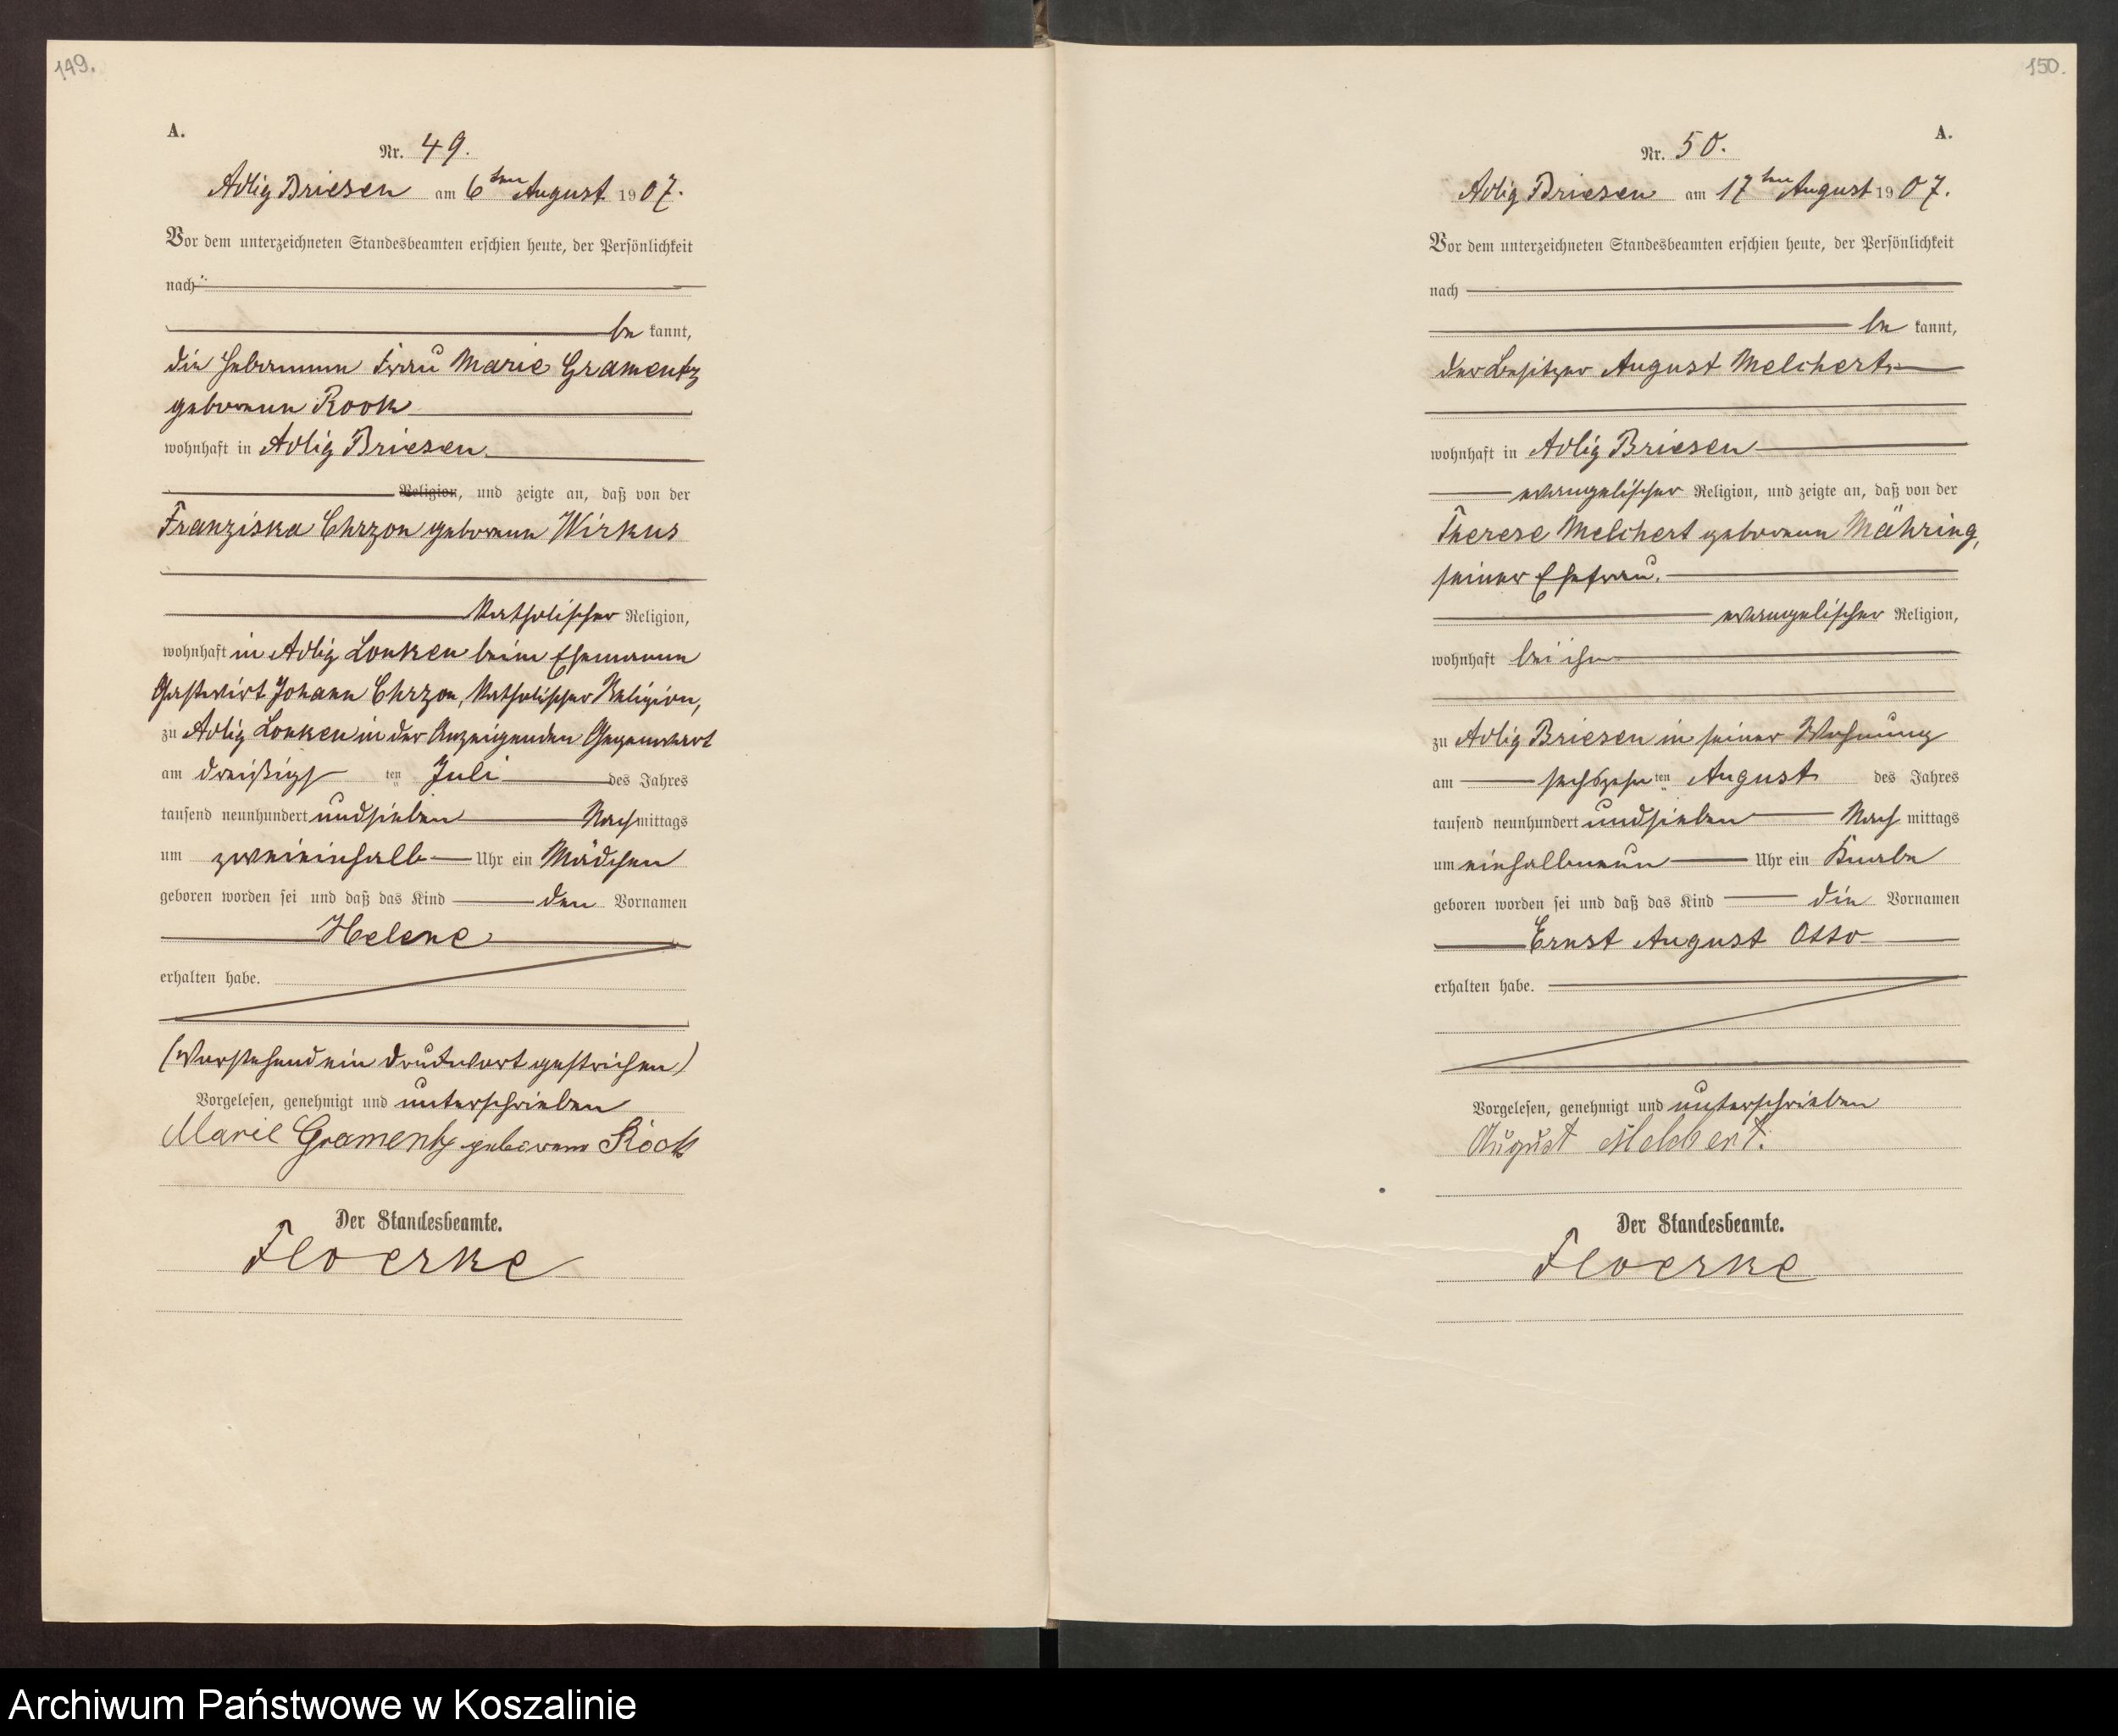 149.
A.
Nr. 49.
Adlig Briesen am 6ten August 1907.
Vor dem unterzeichneten Standesbeamten erschien heute, der Persönlichkeit
nach
be kannt,
die Hebamme Frau Marie Gramentz
geborene Rook
wohnhaft in Adlig Briesen
Religion, und zeigte an, daß von der
Franziska Chrzon geborene Wirkus
katholischer Religion,
wohnhaft in Adlig Lonken beim Ehemann
Gastwirt Johann Chrzon, katholischer Religion,
zu Adlig Lonken in der Anzeigenden Gegenwart
am dreißigsten Juli des Jahres
tausend neunhundert und sieben Nachmittags
um zweieinhalb Uhr ein Mädchen
geboren worden sei und daß das Kind den Vornamen
Helene
erhalten habe.
(Vorstehend ein Druckwort gestrichen)
Vorgelesen, genehmigt und unterschrieben
Marie Gramentz geborene Rook
Der Standesbeamte.
Floerke
150.
A.
Nr. 50.
Adlig Briesen am 17ten August 1907.
Vor dem unterzeichneten Standesbeamten erschien heute, der Persönlichkeit
nach
be kannt,
der Besitzer August Melchert,
wohnhaft in Adlig Briesen
evangelischer Religion, und zeigte an, daß von der
Therese Melchert geborene Mähring,
seiner Ehefrau,
evangelischer Religion,
wohnhaft bei ihm
zu Adlig Briesen in seiner Wohnung
am sechszehnten August des Jahres
tausend neunhundert und sieben Nachmittags
um einhalbneun Uhr ein Knabe
geboren worden sei und daß das Kind die Vornamen
Ernst August Otto
erhalten habe.
Vorgelesen, genehmigt und unterschrieben
August Melchert.
Der Standesbeamte.
Floerke
Archiwum Państwowe w Koszalinie